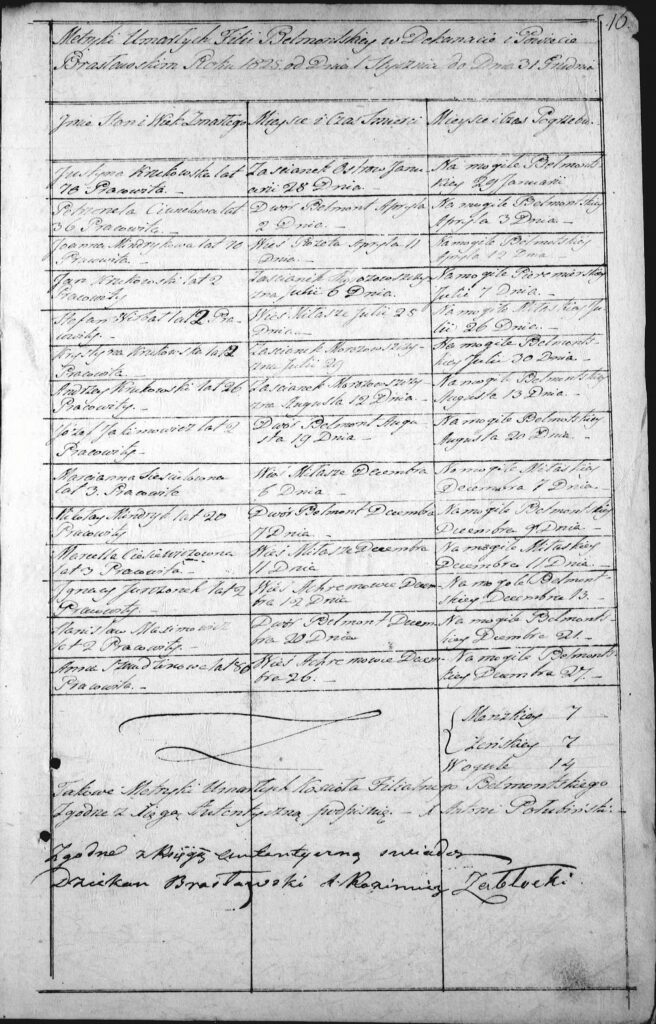 16.
Metryki Umarłych Filii Belmontskiey w Dekanacie i Powiecie
Brasławskim Roku 1828 od Dnia 1 Stycznia do Dnia 31 Grudnia
Imie Stan i Wiek Zmarłego
Mieysce i Czas Śmierci
Mieysce i czas Pogrzebu
Justyna Krukowska lat
70 Pracowita.
Zascianek Ostrow Janu-
arii 28 Dnia.
Na mogile Belmont-
skiey 29 Januarii
lat
36 Pracowita.
Dwór Belmont Apryla
2 Dnia.
Na mogile Belmontskiey
Apryla 3 Dnia.
Joanna Mindrykowa lat 70
Pracowita.
Wieś Apryla 11
Dnia.
Na mogile Belmontskiey
Apryla 12 Dnia.
Jan Krukowski lat 2
Pracowity
Zascianek
Julii 6 Dnia.
Na mogile
Julii 7 Dnia.
Stefan lat 2 Pra-
cowity.
Wieś Milasze Julii 25
Dnia.
Na mogile Milaskiey Ju-
lii 26 Dnia.
Krystyna Krukowska lat 2
Pracowita.
Zascianek Morozowszczy-
zna Julii 29
Na mogile Belmont-
skiey Julii 30 Dnia.
Andrzey Krukowski lat 26
Pracowity.
Zascianek Morozowszczy-
zna Augusta 12 Dnia.
Na mogile Belmontskiey
Augusta 13 Dnia.
Józef Jakimowicz lat 2
Pracowity.
Dwór Belmont Augu-
sta 19 Dnia.
Na mogile Belmontskiey
Augusta 20 Dnia.
Marcianna
lat 3. Pracowita
Wieś Milasze Decembra
6 Dnia.
Na mogile Milaskiey
Decembra 7 Dnia.
Mikołay Mindryk lat 20
Pracowity
Dwór Belmont Decembra
7 Dnia.
Na mogile Belmontskiey
Decembra 9 Dnia.
Marcella
lat 3 Pracowita.
Wieś Milasze Decembra
11 Dnia.
Na mogile Milaskiey
Decembra 11 Dnia.
Ignacy Jurczonek lat 2
Pracowity.
Wieś Achremowie Decem-
bra 12 Dnia.
Na mogile Belmont-
skiey Decembra 13.
Stanisław Masinowicz
lat 2 Pracowity.
Dwór Belmont Decem-
bra 20 Dnia
Na mogile Belmont-
skiey Decembra 21.
Anna lat 80
Pracowita.
Wieś Achremowie Decem-
bra 26.
Na mogile Belmont-
skiey Decembra 27.
Męszkiey 7
Żeńskiey 7
Wogule 14
Takowe Metryki Umarłych Kościoła Filialnego Belmontskiego
Zgodne z Xięgą Autentyczną podpisuię. X Antoni Połubiński.
Zgodne z Xięgą autentyczną swiadczę
Dziekan Brasławski X. Kazimierz Zabłocki.